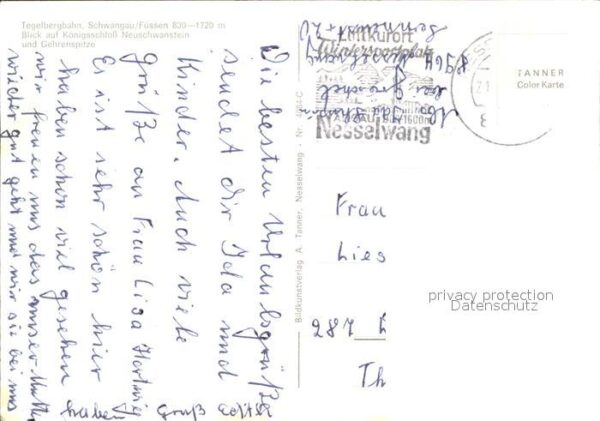 Tegelbergbahn, Schwangau/Füssen 830—1720 m
Blick auf Königsschloß Neuschwanstein
und Gehrenspitze
Die besten Urlaubsgrüße
sendet dir Ida und
Kinder. Auch viele
Grüße an Frau Lisa
Es ist sehr schön hier
haben schon viel gesehen
wir freuen uns das unser Mutter
wieder gut geht und wir sie bei uns
haben Gruß Edith
Bildkunstverlag A. Tanner, Nesselwang - Nr.
Luftkurort
Wintersportplatz
Nesselwang
8964
TANNER
Color Karte
Frau
Lies
287
Th
privacy protection
Datenschutz